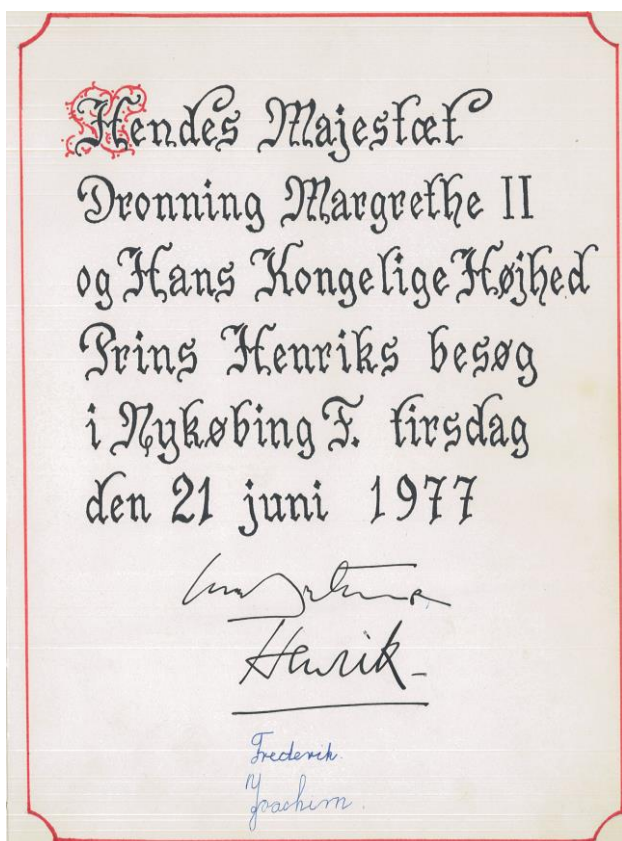 Hendes Majestæt
Dronning Margrethe II
og Hans Kongelige Højhed
Prins Henriks besøg
i Nykøbing F. tirsdag
den 21 juni 1977
Margrethe
Henrik
Frederik.
Joachim.